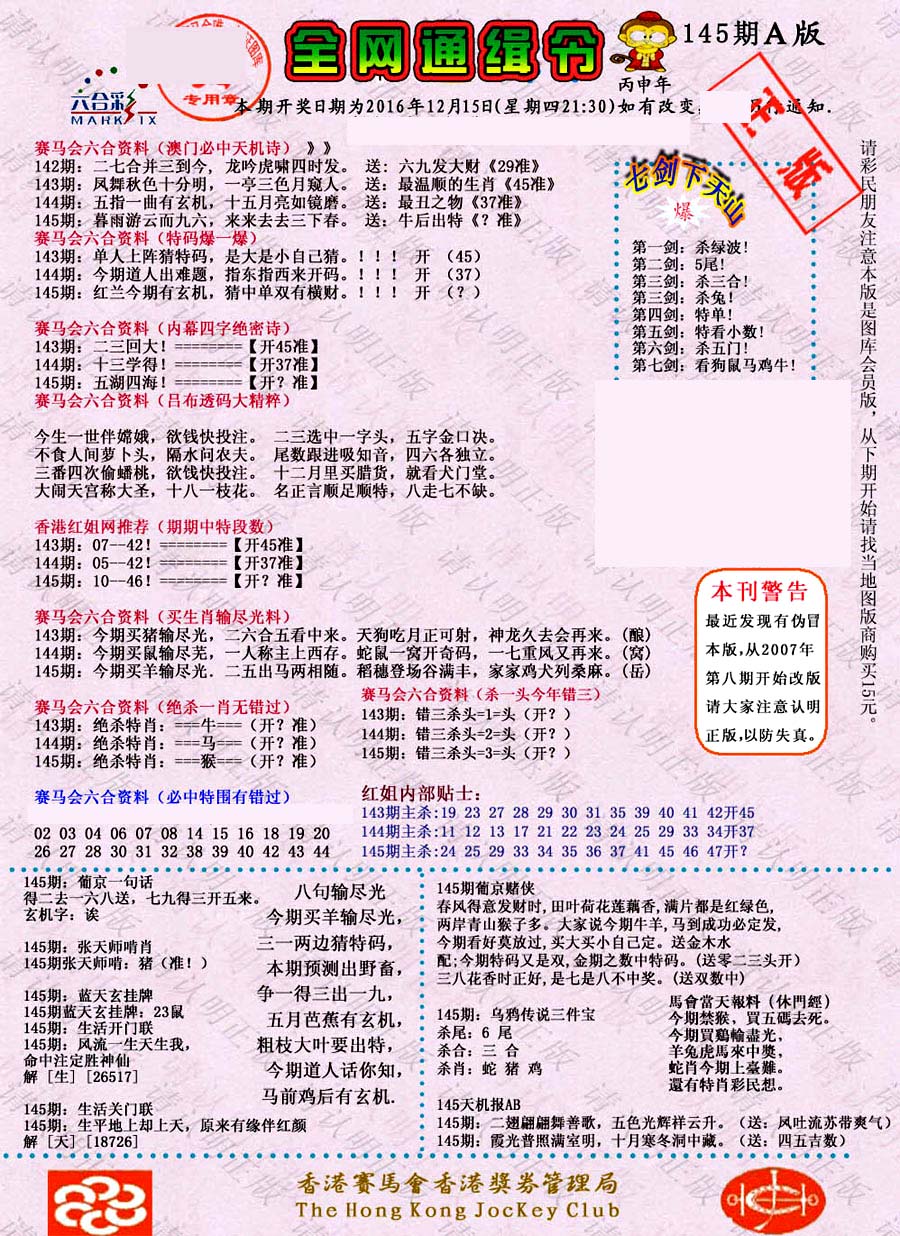 全网通缉令
145期A版
丙申年
六合彩
MARK SIX
专用章
正版
本期开奖日期为2016年12月15日(星期四21:30)如有改变,
通知.
赛马会六合资料（澳门必中天机诗）》》
142期：二七合并三到今，龙吟虎啸四时发。 送：六九发大财《29准》
143期：凤舞秋色十分明，一亭三色月窥人。 送：最温顺的生肖《45准》
144期：五指一曲有玄机，十五月亮如镜磨。 送：最丑之物《37准》
145期：暮雨游云而九六，来来去去三下春。 送：牛后出特《？准》
赛马会六合资料（特码爆一爆）
143期：单人上阵猜特码，是大是小自己猜。！！！ 开 （45）
144期：今期道人出难题，指东指西来开码。！！！ 开 （37）
145期：红兰今期有玄机，猜中单双有横财。！！！ 开 （？）
赛马会六合资料（内幕四字绝密诗）
143期：二三回大！========【开45准】
144期：十三学得！========【开37准】
145期：五湖四海！========【开？准】
赛马会六合资料（吕布透码大精粹）
今生一世伴嫦娥，欲钱快投注。 二三选中一字头，五字金口决。
不食人间萝卜头，隔水问农夫。 尾数跟进吸知音，四六各独立。
三番四次偷蟠桃，欲钱快投注。 十二月里买腊货，就看犬门堂。
大闹天宫称大圣，十八一枝花。 名正言顺足顺特，八走七不缺。
香港红姐网推荐（期期中特段数）
143期：07--42！========【开45准】
144期：05--42！========【开37准】
145期：10--46！========【开？准】
赛马会六合资料（买生肖输尽光料）
143期：今期买猪输尽光，二六合五看中来。天狗吃月正可射，神龙久去会再来。(酿)
144期：今期买鼠输尽芜，一人称主上西存。蛇鼠一窝开奇码，一七重风又再来。(窝)
145期：今期买羊输尽光．二五出马两相随。稻穗登场谷满丰，家家鸡犬列桑麻。(岳)
赛马会六合资料（绝杀一肖无错过）
143期：绝杀特肖：===牛===（开？准）
144期：绝杀特肖：===马===（开？准）
145期：绝杀特肖：===猴===（开？准）
赛马会六合资料（杀一头今年错三）
143期：错三杀头=1=头（开？）
144期：错三杀头=2=头（开？）
145期：错三杀头=3=头（开？）
赛马会六合资料（必中特围有错过）
02 03 04 06 07 08 14 15 16 18 19 20
26 27 28 30 31 32 38 39 40 42 43 44
红姐内部贴士：
143期主杀:19 23 27 28 29 30 31 35 39 40 41 42开45
144期主杀:11 12 13 17 21 22 23 24 25 29 33 34开37
145期主杀:24 25 29 33 34 35 36 37 41 45 46 47开?
七剑下天山
爆
第一剑：杀绿波！
第二剑：5尾！
第三剑：杀三合！
第三剑：杀兔！
第四剑：特单！
第五剑：特看小数！
第六剑：杀五门！
第七剑：看狗鼠马鸡牛！
请彩民朋友注意本版是图库会员版，从下期开始请找当地图版商购买15元。
本刊警告
最近发现有伪冒
本版,从2007年
第八期开始改版
请大家注意认明
正版,以防失真。
145期：葡京一句话
得二去一六八送，七九得三开五来。
玄机字：诶
145期：张天师啃肖
145期张天师啃：猪（准！）
145期：蓝天玄挂牌
145期蓝天玄挂牌：23鼠
145期：生活开门联
145期：风流一生天生我，
命中注定胜神仙
解 [生] [26517]
145期：生活关门联
145期：生平地上却上天，原来有缘伴红颜
解 [天] [18726]
八句输尽光
今期买羊输尽光，
三一两边猜特码，
本期预测出野畜，
争一得三出一九，
五月芭蕉有玄机，
粗枝大叶要出特，
今期道人话你知，
马前鸡后有玄机.
145期葡京赌侠
春风得意发财时,田叶荷花莲藕香,满片都是红绿色,
两岸青山猴子多。大家说今期牛羊,马到成功必定发,
今期看好莫放过,买大买小自己定。送金木水
配;今期特码又是双,金期之数中特码。(送零二三头开)
三八花香时正好,是七是八不中奖。(送双数中)
145期：乌鸦传说三件宝
杀尾：6 尾
杀合：三 合
杀肖：蛇 猪 鸡
馬會當天報料（休門經）
今期禁猴、買五碼去死。
今期買鷄輸盡光，
羊兔虎馬來中獎，
蛇肖今期上臺難。
還有特肖彩民想。
145天机报AB
145期：二翅翩翩舞善歌，五色光辉祥云升。（送：风吐流苏带爽气）
145期：霞光普照满室明，十月寒冬洞中藏。（送：四五吉数）
香港賽馬會香港獎券管理局
The Hong Kong JocKey Club
请认明正版